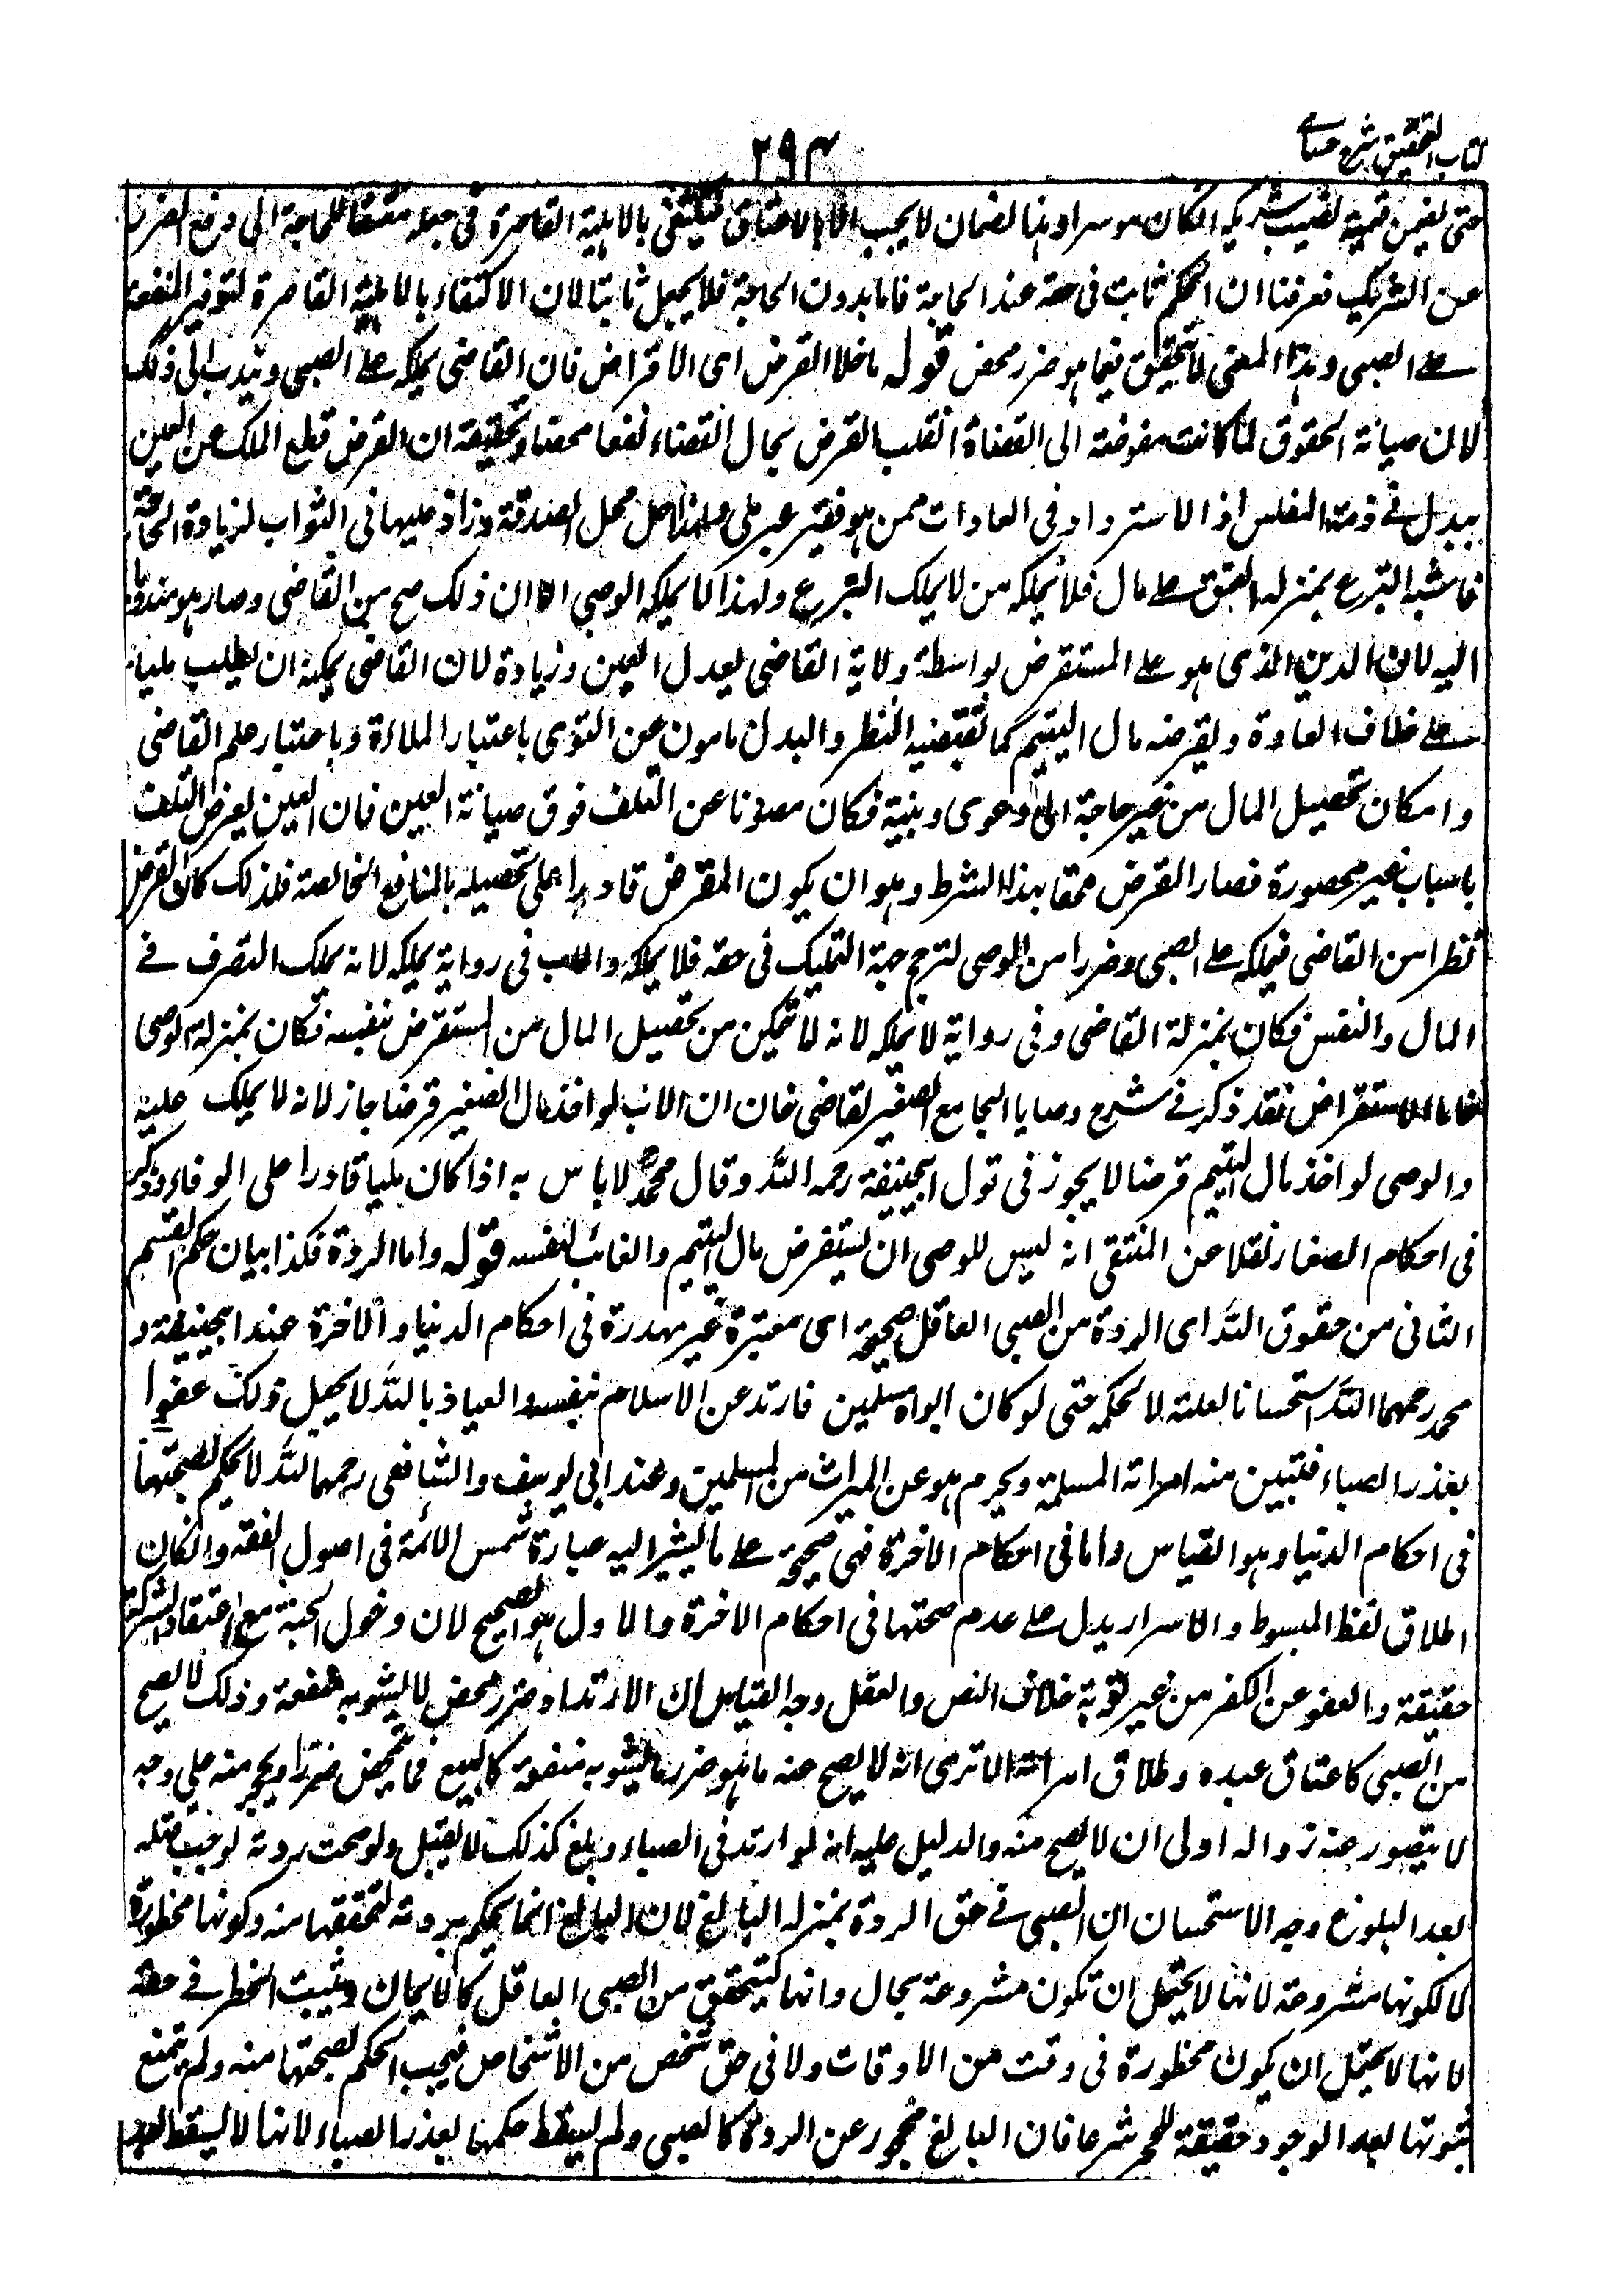 كتاب التحقيق شرح حسامى
٢٩٤
حتى يضمن قيمة نصيب شريكه ان كان موسرا وهذا الضمان لا يجب الا بالاعتاق فيكتفى بالاهلية القاصرة فى جعله معتقا للحاجة الى دفع الضرر
عن الشريك فعرفنا ان الحكم ثابت فى حقه عند الحاجة فاما بدون الحاجة فلا يجعل ثابتا لان الاكتفاء بالاهلية القاصرة لتوفير المنفعة
على الصبى وهذا المعنى لا يتحقق فيما هو ضرر محض قوله ما خلا القرض اى الاقراض فان القاضى يملكه على الصبى ويندب الى ذلك
لان صيانة الحقوق لما كانت مفوضة الى القضاة انقلب القرض بحال القضاء نفعا محضا وتحقيقه ان القرض قطع الملك عن العين
ببدل فى ذمة المفلس اذ الاسترداد فى العادات ممن هو فقير غير ملى ولهذا حل محل الصدقة وزاد عليها فى الثواب لزيادة الحاجة
فاشبه التبرع بمنزلة العتق على مال فلا يملكه من لا يملك التبرع ولهذا لا يملكه الوصى الا ان ذلك صح من القاضى وصار هو مندوبا
اليه لان الدين الذى هو على المستقرض بواسطة ولاية القاضى يعدل العين وزيادة لان القاضى يمكنه ان يطلب مليا
على خلاف العادة ويقرضه مال اليتيم كما تقتضيه النظر والبدل مامون عن التوى باعتبار الملاءة وباعتبار علم القاضى
وامكان تحصيل المال من غير حاجة الى دعوى وبينة فكان مصونا عن التلف فوق صيانة العين فان العين يعرض التلف
باسباب غير محصورة فصار القرض ملحقا بهذا الشرط وهو ان يكون المقرض قادرا على تحصيله بالمنافع الخالصة فلذلك كان القرض
نظرا من القاضى فيملكه على الصبى وضررا من الوصى لترجح جهة التمليك فى حقه فلا يملكه والاب فى رواية يملكه لانه يملك التصرف فى
المال والنفس فكان بمنزلة القاضى وفى رواية لا يملكه لانه لا يتمكن من تحصيل المال من المستقرض بنفسه فكان بمنزلة الوصى
فاما الاستقراض فقد ذكر فى شرح وصايا الجامع الصغير لقاضى خان ان الاب لو اخذ مال الصغير قرضا جاز لانه لا يملك عليه
والوصى لو اخذ مال اليتيم قرضا لا يجوز فى قول ابيحنيفة رحمه الله وقال محمد لا باس به اذا كان مليا قادرا على الوفاء وذكر
فى احكام الصغار نقلا عن المنتقى انه ليس للوصى ان يستقرض مال اليتيم والغائب لنفسه قوله واما الردة فكذا بيان حكم القسم
الثانى من حقوق الله اى الردة من الصبى العاقل صحيحة اى معتبرة غير مهدرة فى احكام الدنيا والاخرة عند ابيحنيفة و
محمد رحمهما الله استحسانا لعلته لا لحكمه حتى لو كان ابواه مسلمين فارتد عن الاسلام بنفسه والعياذ بالله لا يجعل ذلك عفوا
بعذر الصباء فتبين منه امراته المسلمة ويحرم هو عن الميراث من المسلمين وعند ابى يوسف والشافعى رحمهما الله لا يحكم بصحتها
فى احكام الدنيا وهو القياس واما فى احكام الاخرة فهى صحيحة على ما يشير اليه عبارة شمس الائمة فى اصول الفقه وان كان
اطلاق لفظ المبسوط والاسرار يدل على عدم صحتها فى احكام الاخرة والاول هو الصحيح لان دخول الجنة مع اعتقاد الشرك
حقيقة والعفو عن الكفر من غير توبة خلاف النص والعقل وجه القياس ان الارتداد ضرر محض لا يشوبه منفعة وذلك لا يصح
من الصبى كاعتاق عبده وطلاق امراته الا ترى انه لا يصح منه ما هو ضرر يشوبه منفعة كالبيع فما تمحض ضررا ويحجر منه على وجه
لا يتصور عنه زواله اولى ان لا يصح منه والدليل عليه انه لو ارتد فى الصباء وبلغ كذلك لا يقتل ولو صحت ردته لوجب قتله
بعد البلوغ وجه الاستحسان ان الصبى فى حق الردة بمنزلة البالغ لان البالغ انما يحكم بردته لتحققها منه وكونها محظورة
لا لكونها مشروعة لانها لا يحتمل ان تكون مشروعة بحال وانها يتحقق من الصبى العاقل كالايمان ويثبت الحظر فى حقه
لانها لا يحتمل ان يكون محظورة فى وقت من الاوقات ولا فى حق شخص من الاشخاص فيجب الحكم بصحتها منه ولم يمتنع
ثبوتها بعد الوجود حقيقة للحجر شرعا فان البالغ محجور عن الردة كالصبى ولم يسقط حكمها بعذر الصباء لانها لا يسقط بعد